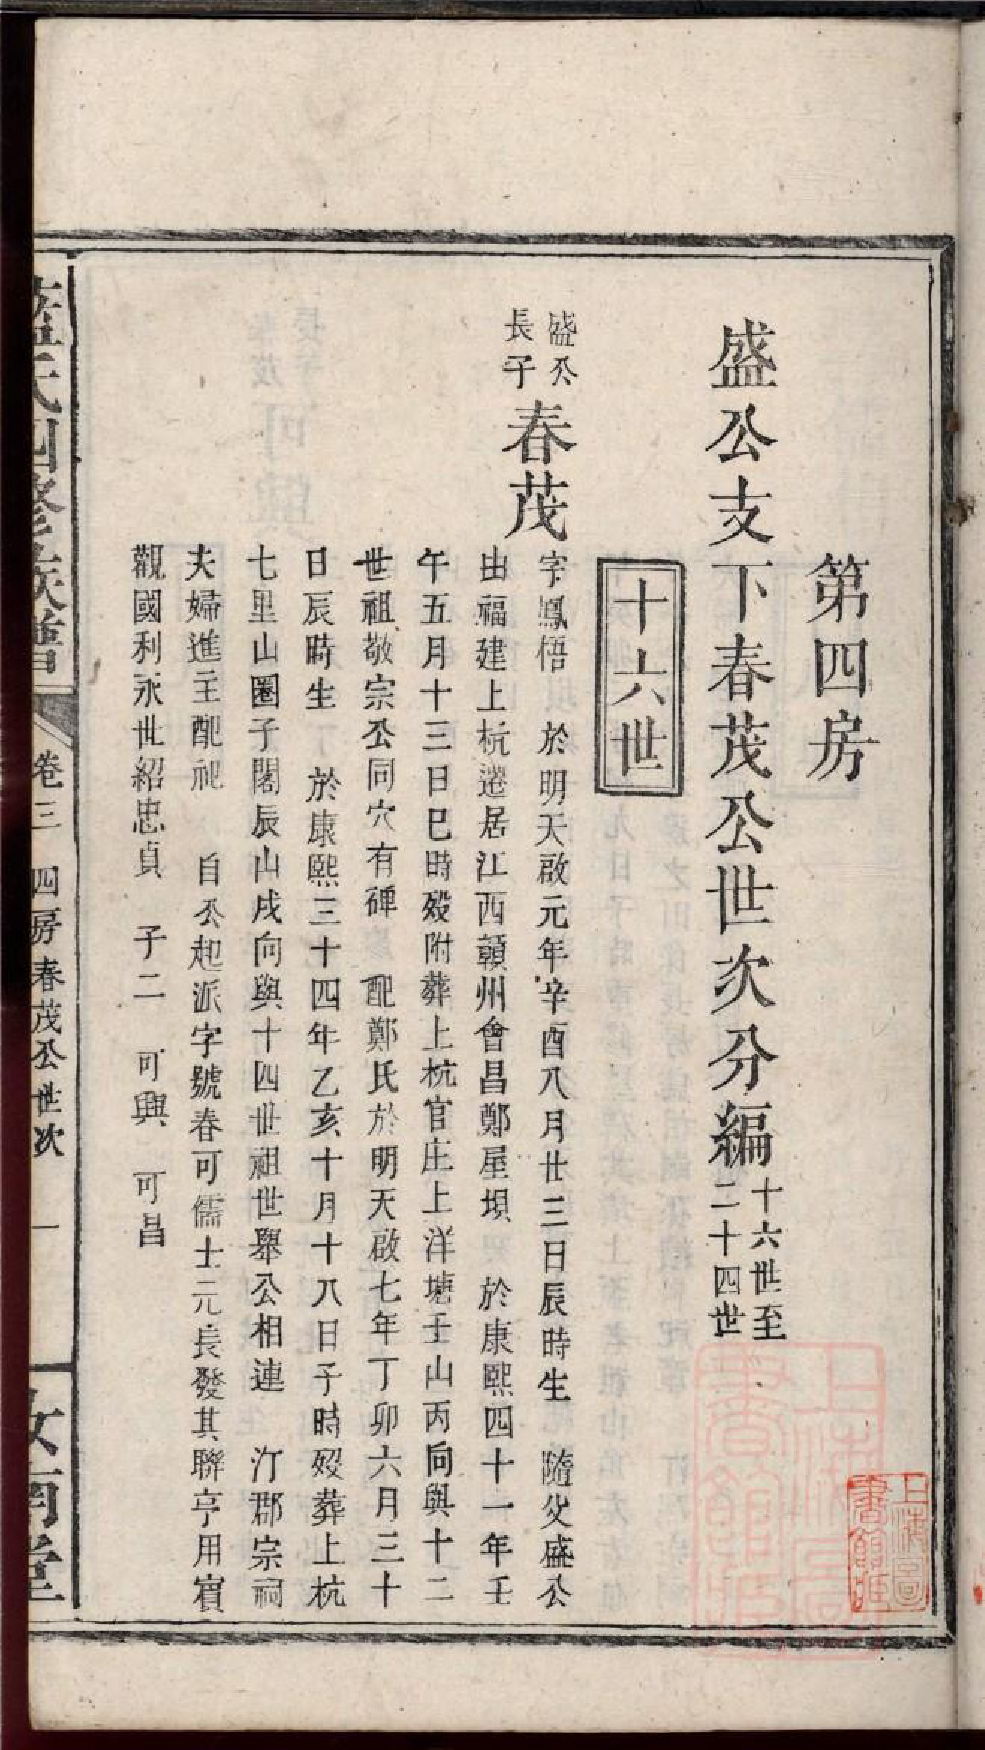 第四房
盛公支下春茂公世次分編 十六世至
二十四世
十六世
盛公
長子
春茂
字鳳梧 於明天啟元年辛酉八月廿三日辰時生 隨父盛公
由福建上杭遷居江西贛州會昌鄭屋壩 於康熙四十一年壬
午五月十三日巳時歿附葬上杭官庄上洋塘壬山丙向與十二
世祖敬宗公同穴有碑 配鄭氏於明天啟七年丁卯六月三十
日辰時生 於康熙三十四年乙亥十月十八日子時歿葬上杭
七里山圈子閣辰山戌向與十四世祖世舉公相連 汀郡宗祠
夫婦進主配祀 自公起派字號春可儒士元長發其聯亨用賓
觀國利永世紹忠貞 子二 可興 可昌
藍氏四修族譜 卷三 四房春茂公世次 一 汝南堂
上海圖書館藏